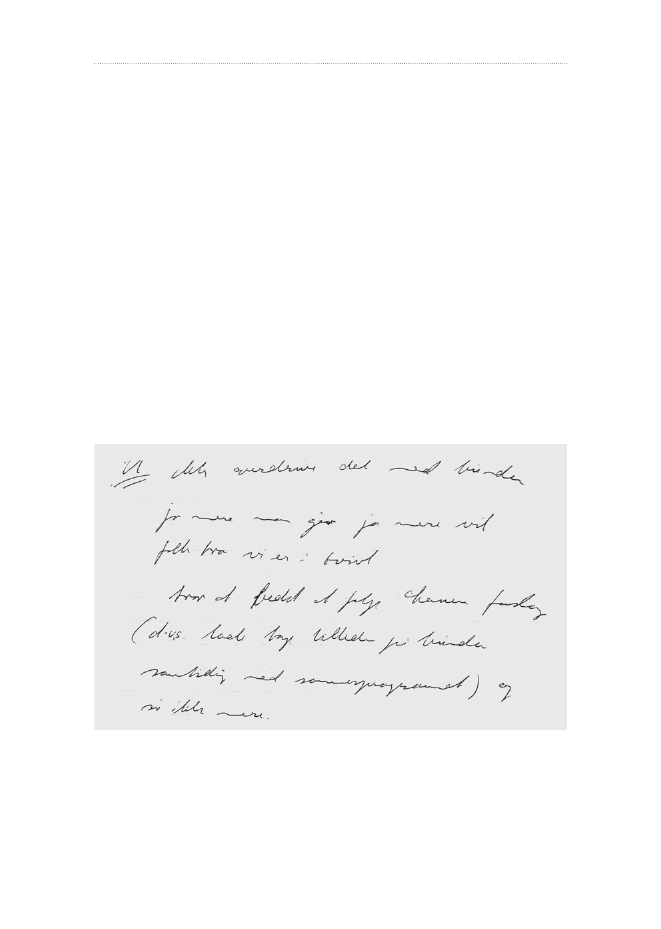 ikke overdrive det med kvinden
jo mere man gør jo mere vil
folk tro vi er i tvivl
tror at bedst at følge forslag
(d.v.s. lade tage billeder på kvinden
samtidig med sommerprogrammet) og
så ikke mere.